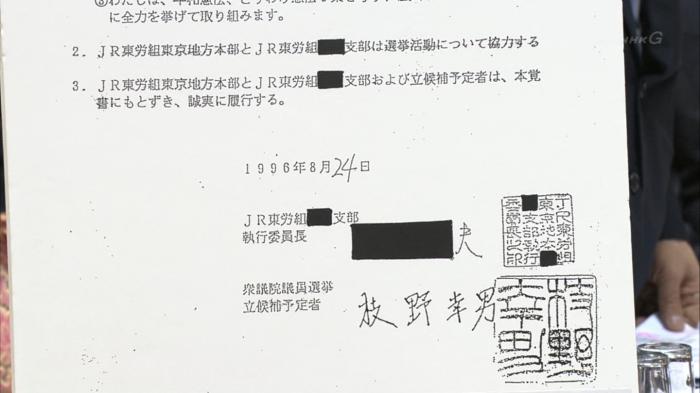 に全力を挙げて取り組みます。
2. JR東労組東京地方本部とJR東労組 支部は選挙活動について協力する
3. JR東労組東京地方本部とJR東労組 支部および立候補予定者は、本覚
書にもとずき、誠実に履行する。
1996年8月24日
JR東労組 支部
執行委員長 夫
衆議院議員選挙
立候補予定者 枝野幸男
枝野幸男
NHK G